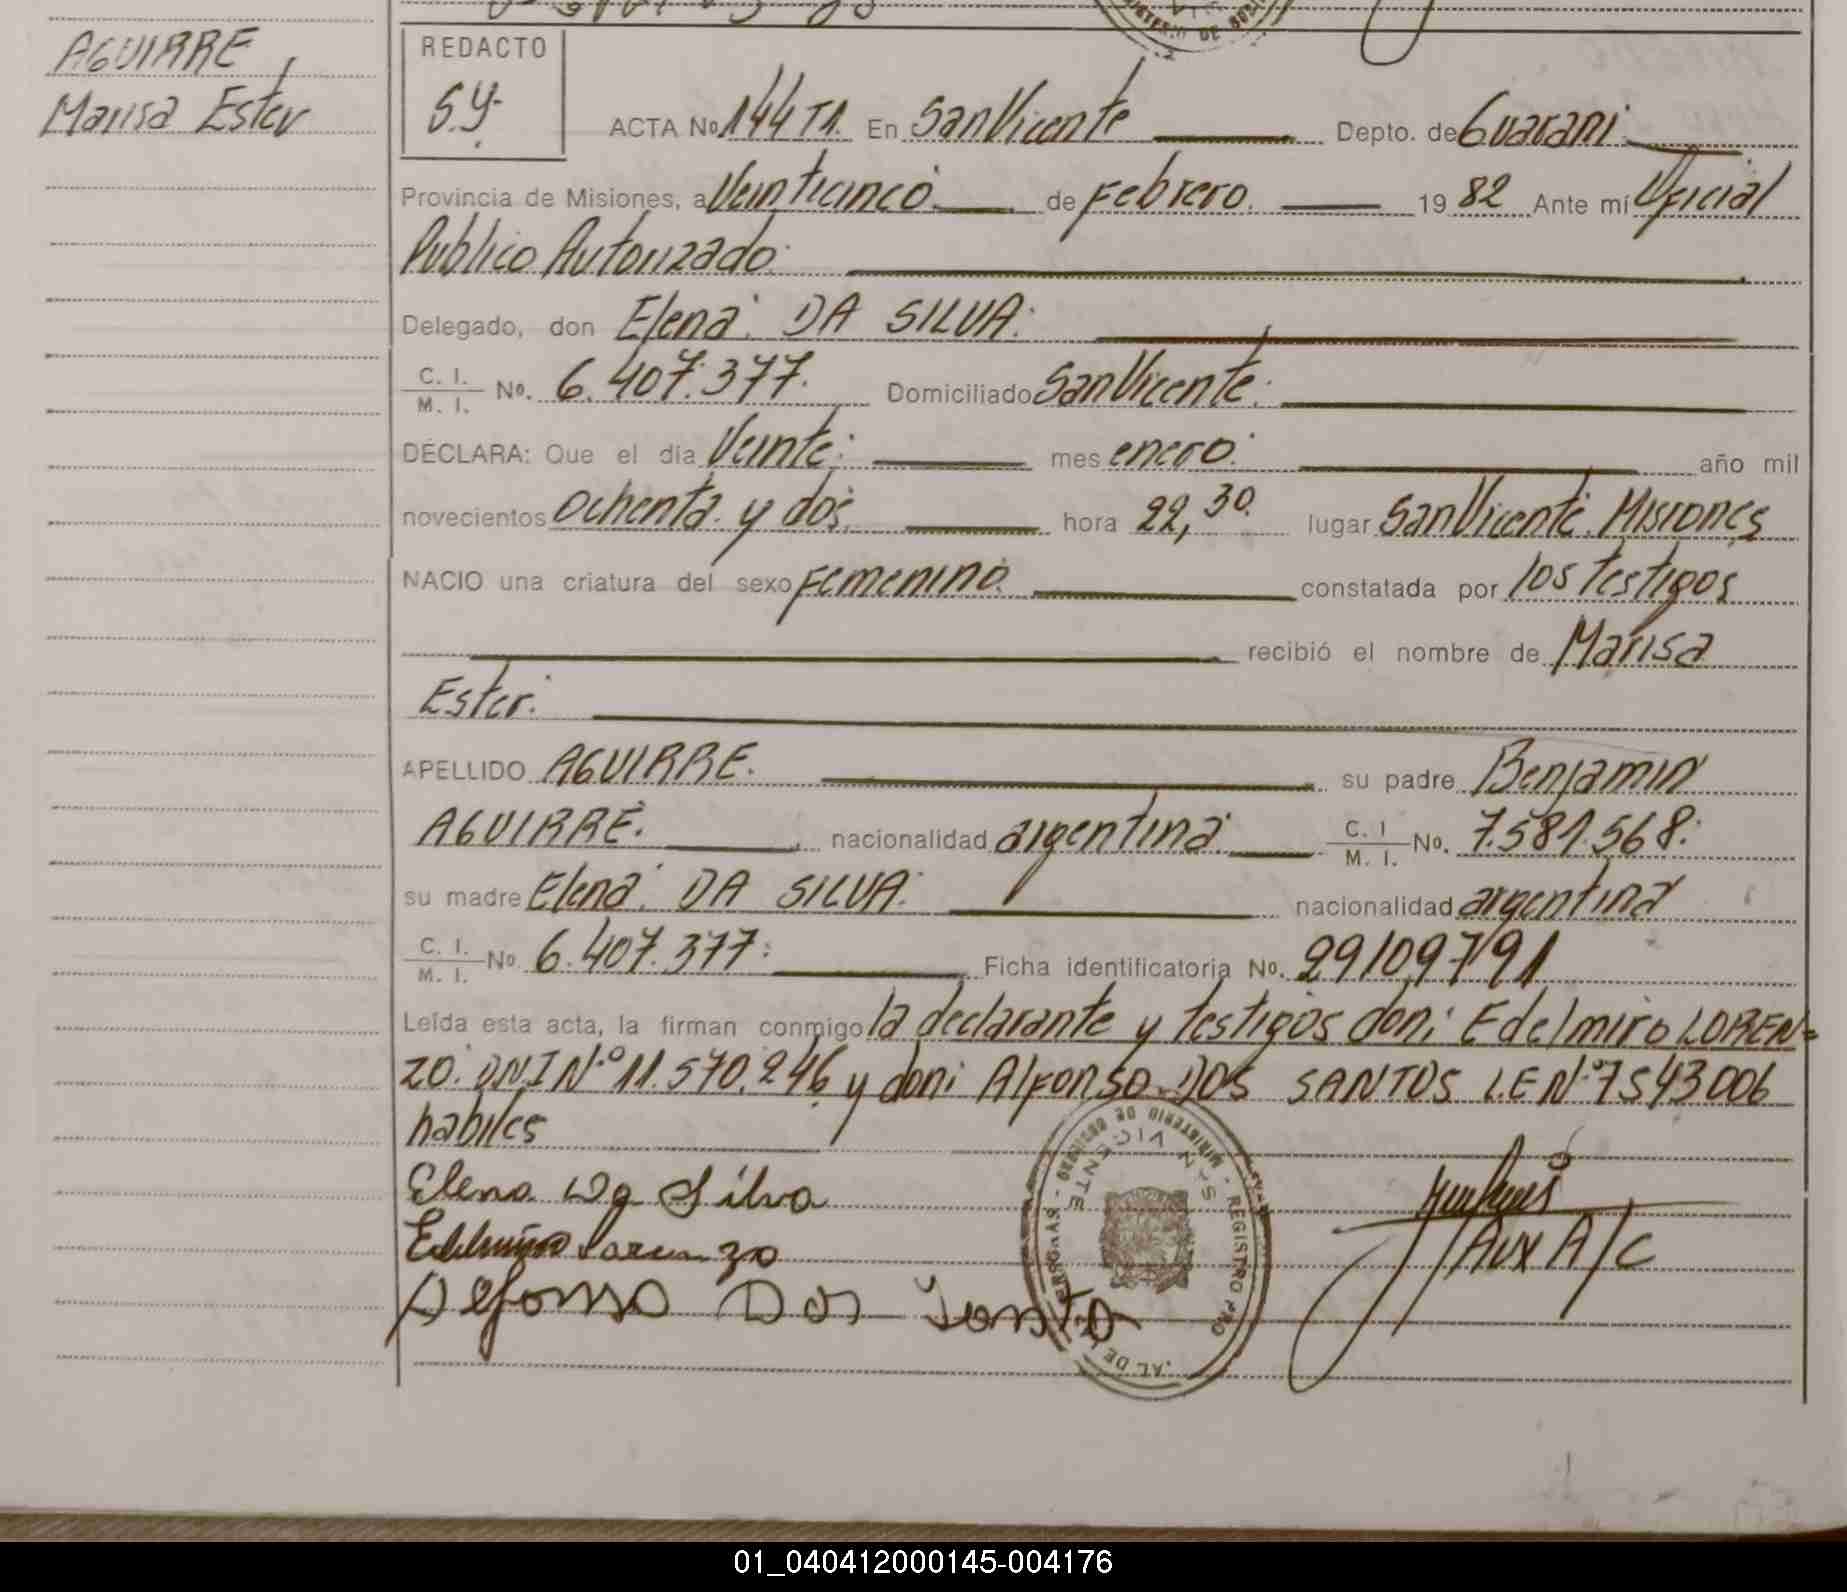 AGUIRRE,
Marisa Ester
REDACTO
S.Y.
ACTA No 144 T1. En San Vicente Depto. de Guarani
Provincia de Misiones, a Veinticinco de Febrero. 19 82 Ante mí Oficial
Publico Autorizado.
Delegado, don Elena DA SILVA.
C. I. M. I. No. 6.407.377. Domiciliado San Vicente.
DECLARA: Que el día Veinte mes enero. año mil
novecientos ochenta y dos hora 22,30. lugar San Vicente Misiones
NACIO una criatura del sexo Femenino constatada por los testigos
recibió el nombre de Marisa
Ester.
APELLIDO AGUIRRE. su padre Benjamin
AGUIRRE. nacionalidad argentina C. I M. I. No. 7.581.568.
su madre Elena DA SILVA. nacionalidad argentina
C. I. M. I. No 6.407.377. Ficha identificatoria No. 29109791
Leída esta acta, la firman conmigo la declarante y testigos don: Edelmiro LOREN=
ZO. D.N.I Nº 11.570.246 y don: Alfonso DOS SANTOS L.E Nº 7543006
habiles
Elena Da Silva
Edelmiro Lorenzo
Alfonso Dos Santo
MINISTERIO DE GOBIERNO - REGISTRO PRO
SAN VICENTE
AL DE
PERSONAS
Aux A/C
01_040412000145-004176